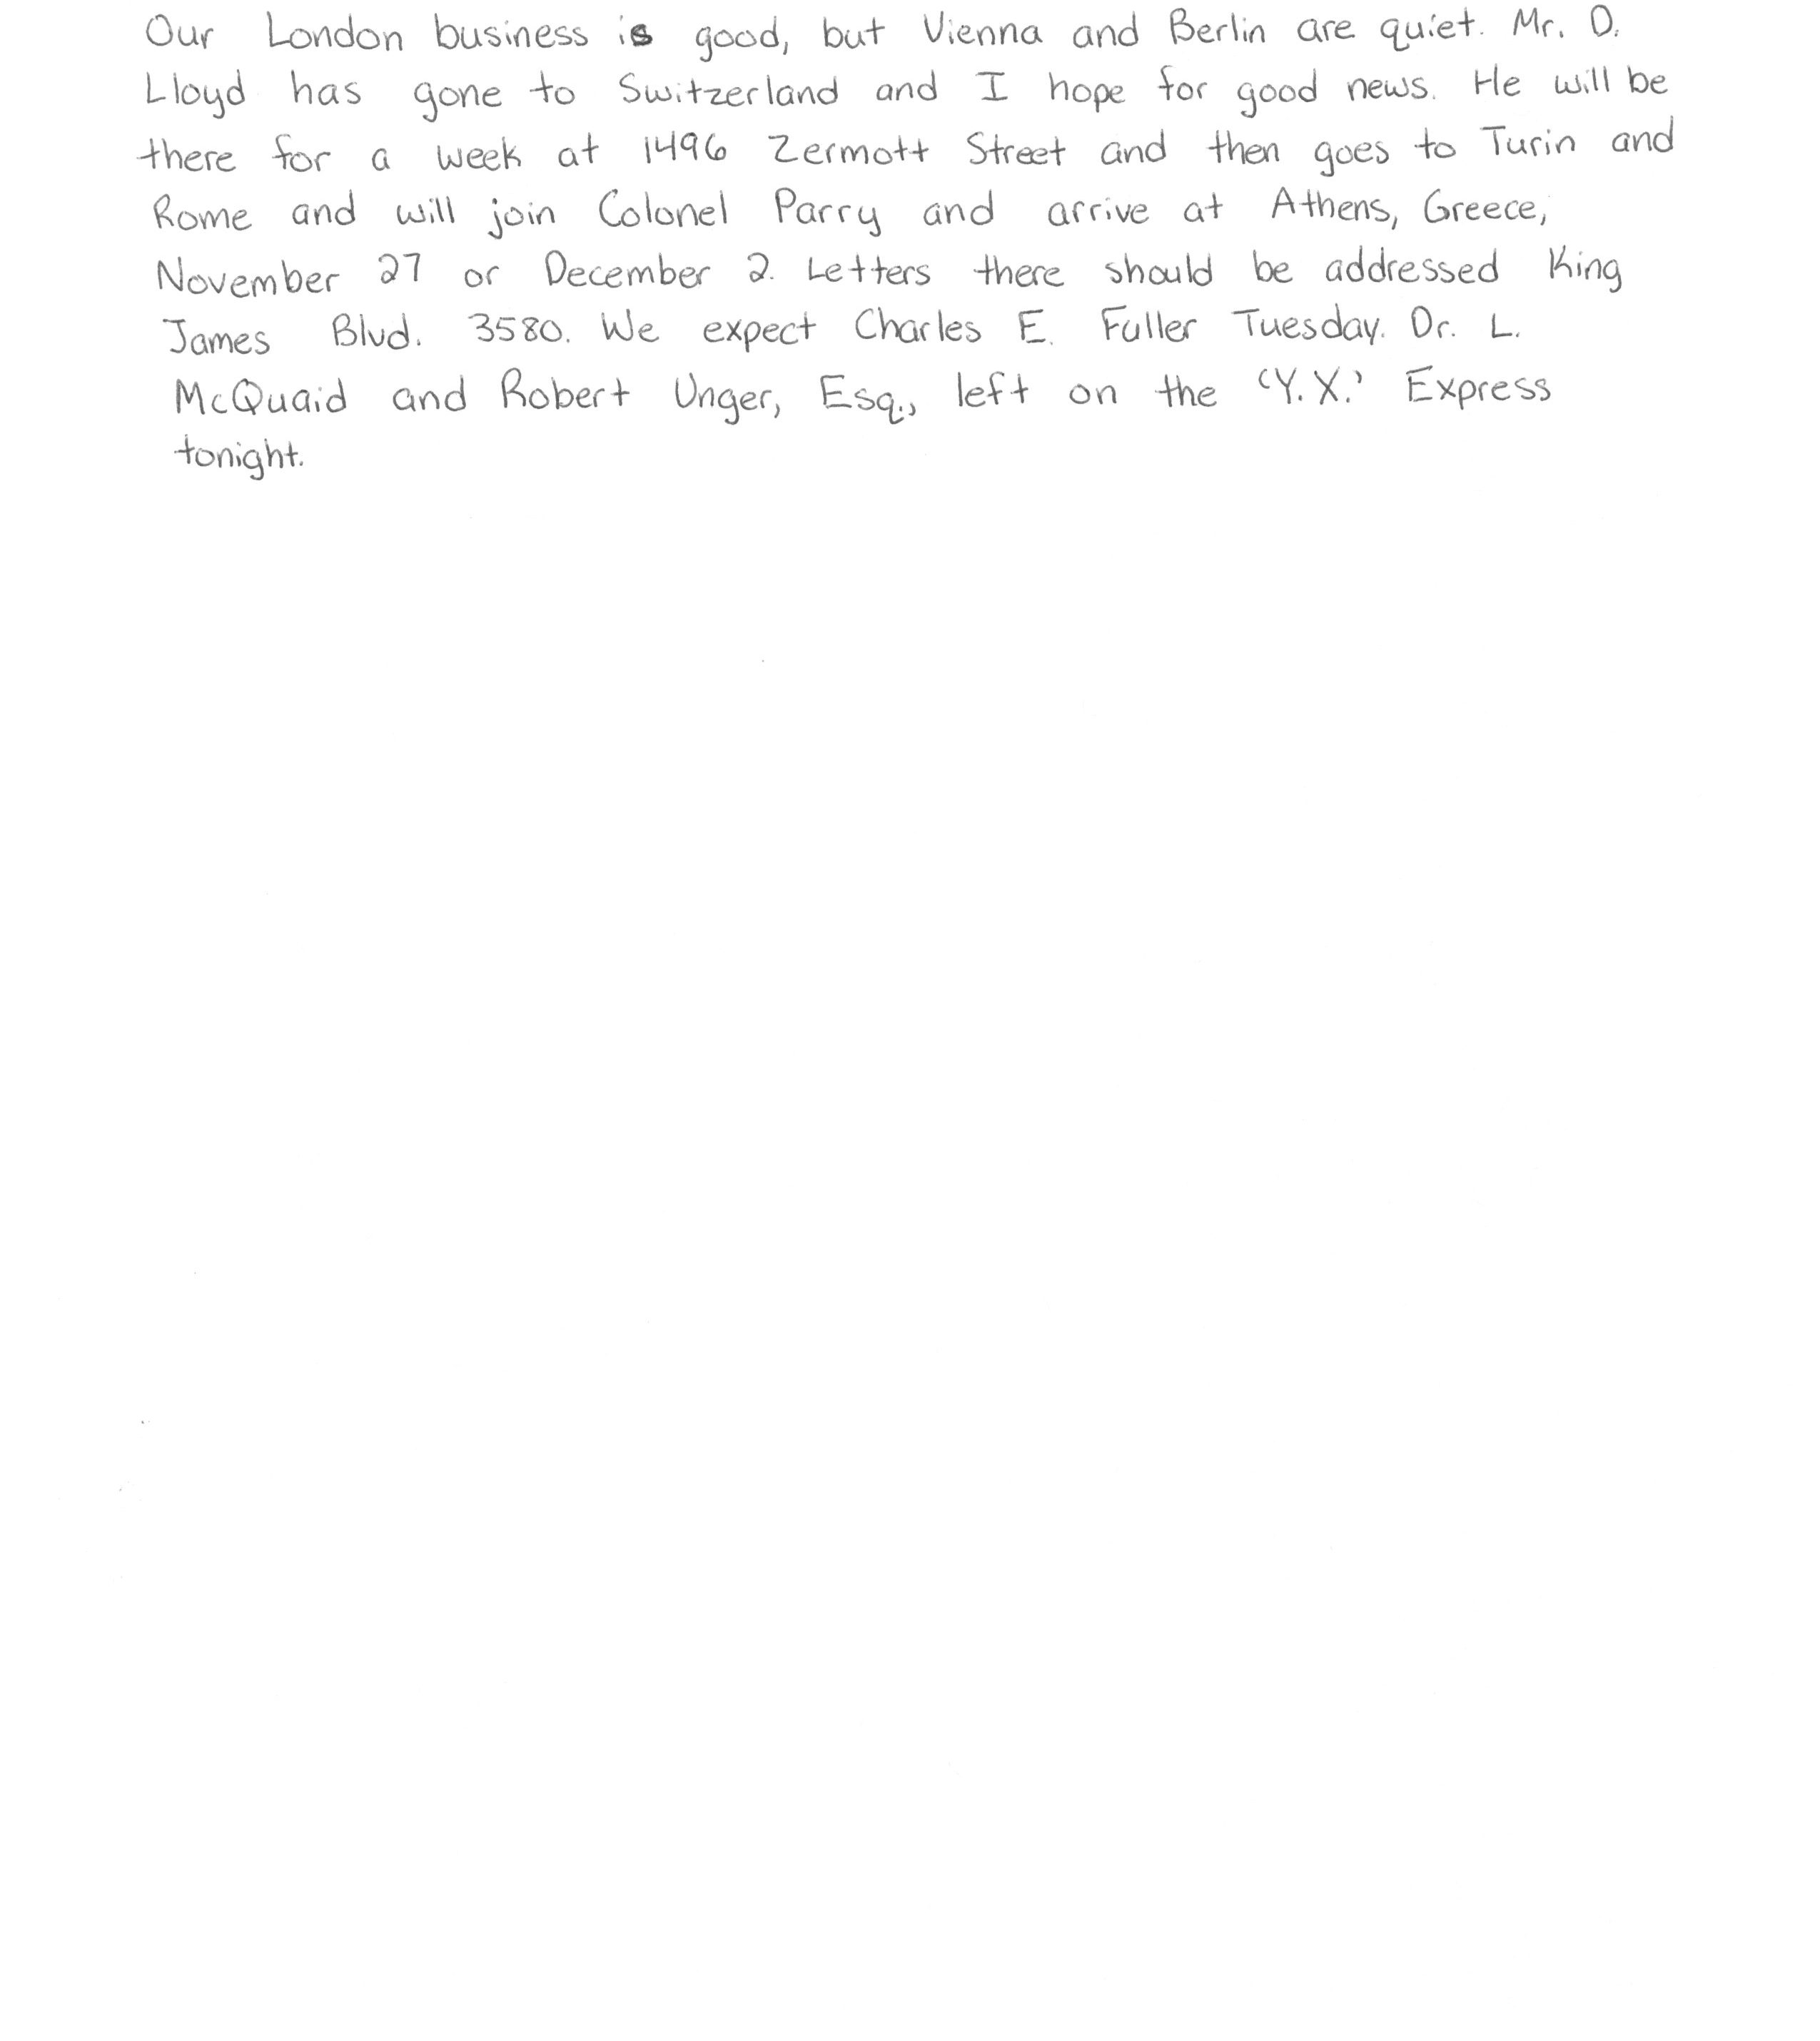 Our London business is good, but Vienna and Berlin are quiet. Mr. D.
Lloyd has gone to Switzerland and I hope for good news. He will be
there for a week at 1496 Zermott Street and then goes to Turin and
Rome and will join Colonel Parry and arrive at Athens, Greece,
November 27 or December 2. Letters there should be addressed King
James Blvd. 3580. We expect Charles E. Fuller Tuesday. Dr. L.
McQuaid and Robert Unger, Esq., left on the 'Y.X.' Express
tonight.